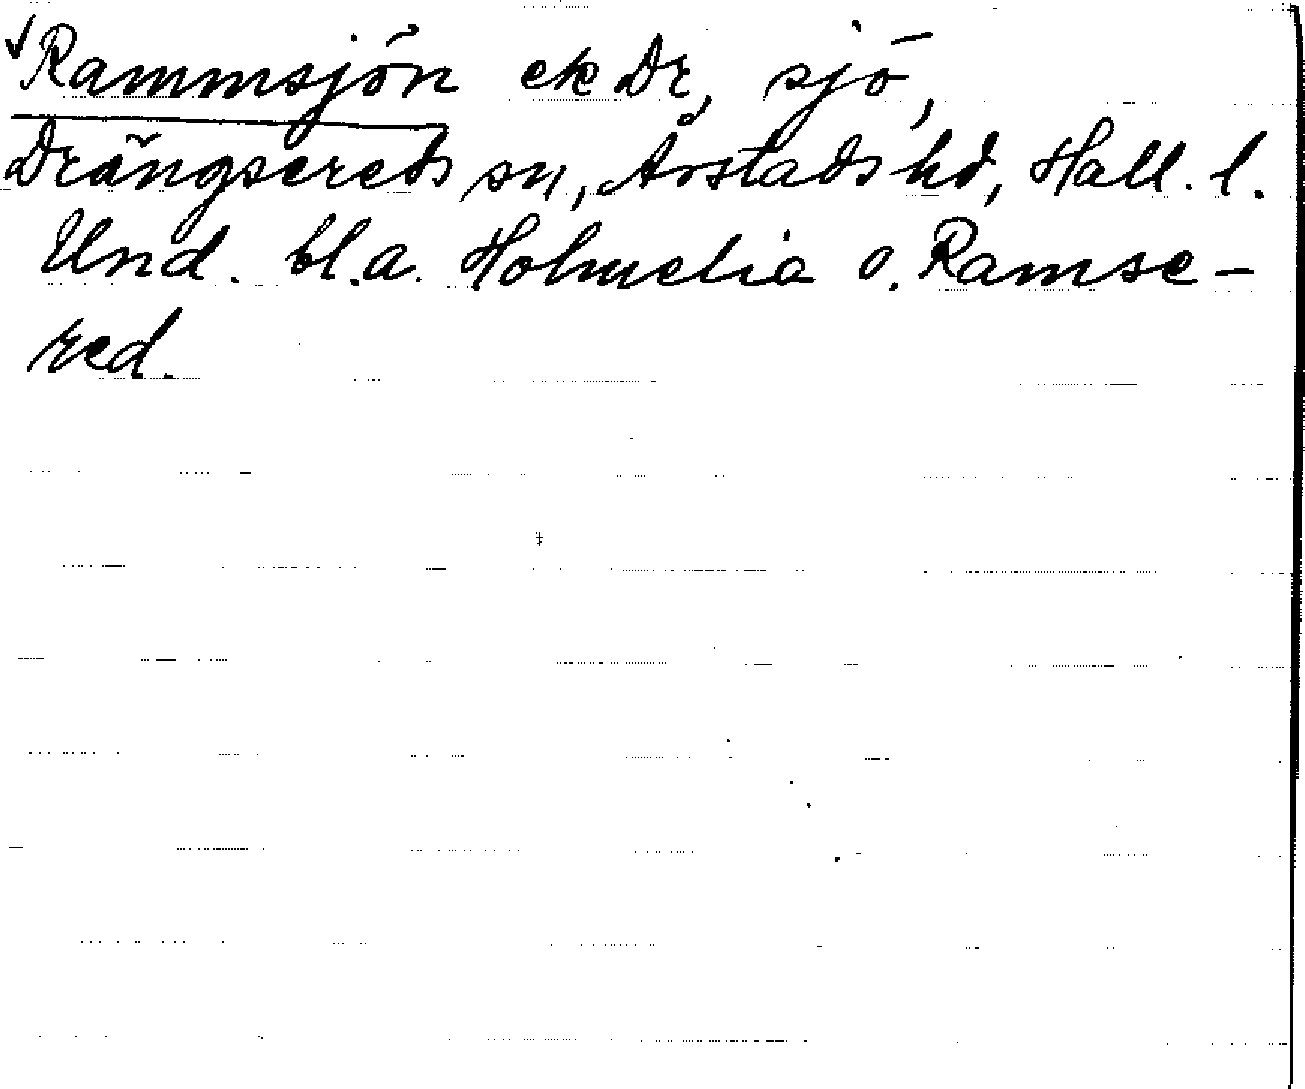 Rammsjön ek Dr, sjö,
Drängsereds sn, Årstads hd, Hall. l.
Und. bl.a. Holmelia o. Ramse-
red.